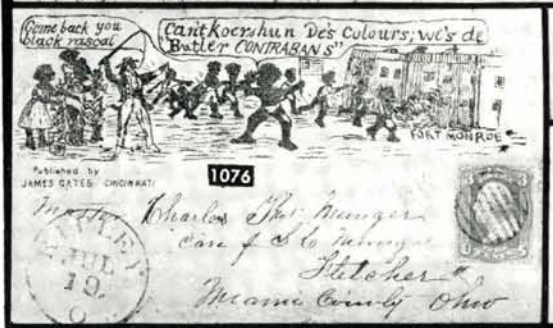 Come back you
black rascal
Can't Koershun De's Colours; we's de
Butler CONTRABANS"
FORT MONROE
Published by
JAMES GATES CINCINNATI
1076
Master Charles Munger
Care of S C Munger
Fletcher
Miami County Ohio
RIPLEY
JUL
19
O
3
3